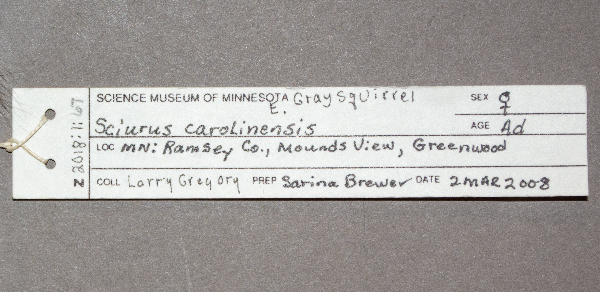 SCIENCE MUSEUM OF MINNESOTA E. Gray Squirrel SEX ♀
Sciurus carolinensis AGE Ad
LOC MN: Ramsey Co., Mounds View, Greenwood
COLL Larry Gregory PREP Sarina Brewer DATE 2 MAR 2008
Z 2018:1:67